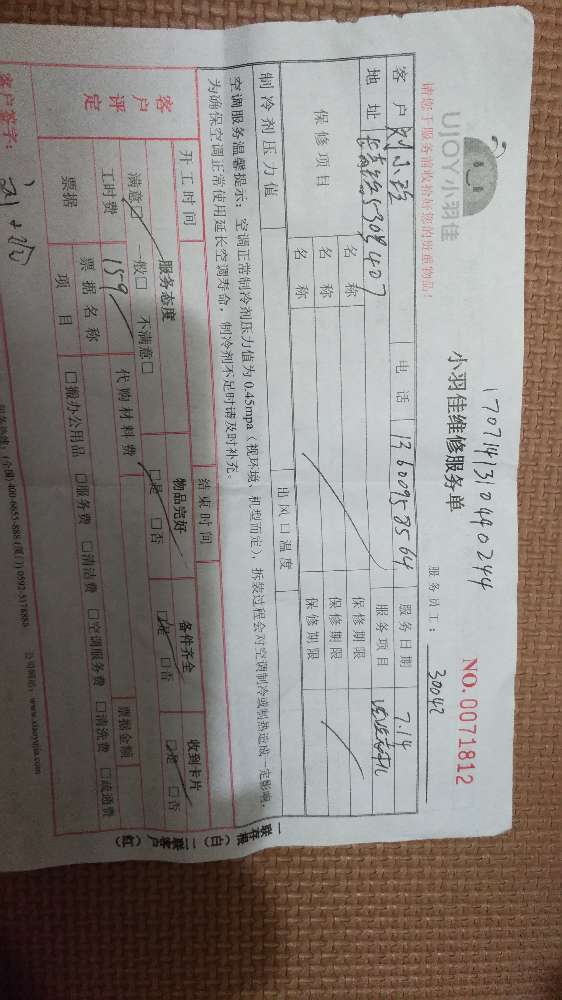 请您于服务前收拾好您的贵重物品!
UJOY小羽佳
1707141310440244
小羽佳维修服务单
NO.0071812
服务员工: 30042
客户 刘小玲 电话 13600958564 服务日期 7.14
地址 530号407 服务项目
保修项目 名称 保修期限
名称 保修期限
名称 保修期限
制冷剂压力值 出风口温度
空调服务温馨提示:空调正常制冷剂压力值为0.45mpa(视环境、机型而定),拆装过程会对空调制冷或制热造成一定影响,
为确保空调正常使用延长空调寿命,制冷剂不足时请及时补充。
开工时间 结束时间
客户评定 服务态度 物品完好 备件齐全 收到卡片
满意□ 一般□ 不满意□ □是 □否 □是 □否 □是 □否
工时费 159 代购材料费 票据金额
票据 票据名称
项目 □搬办公用品 □服务费 □清洁费 □空调服务费 □清洗费 □疏通费
客户签字:
(全国)400-6653-888 (厦门)0592-5178888 公司网站:www.xiaoyujia.com
一联存根(白) 二联客户(红)